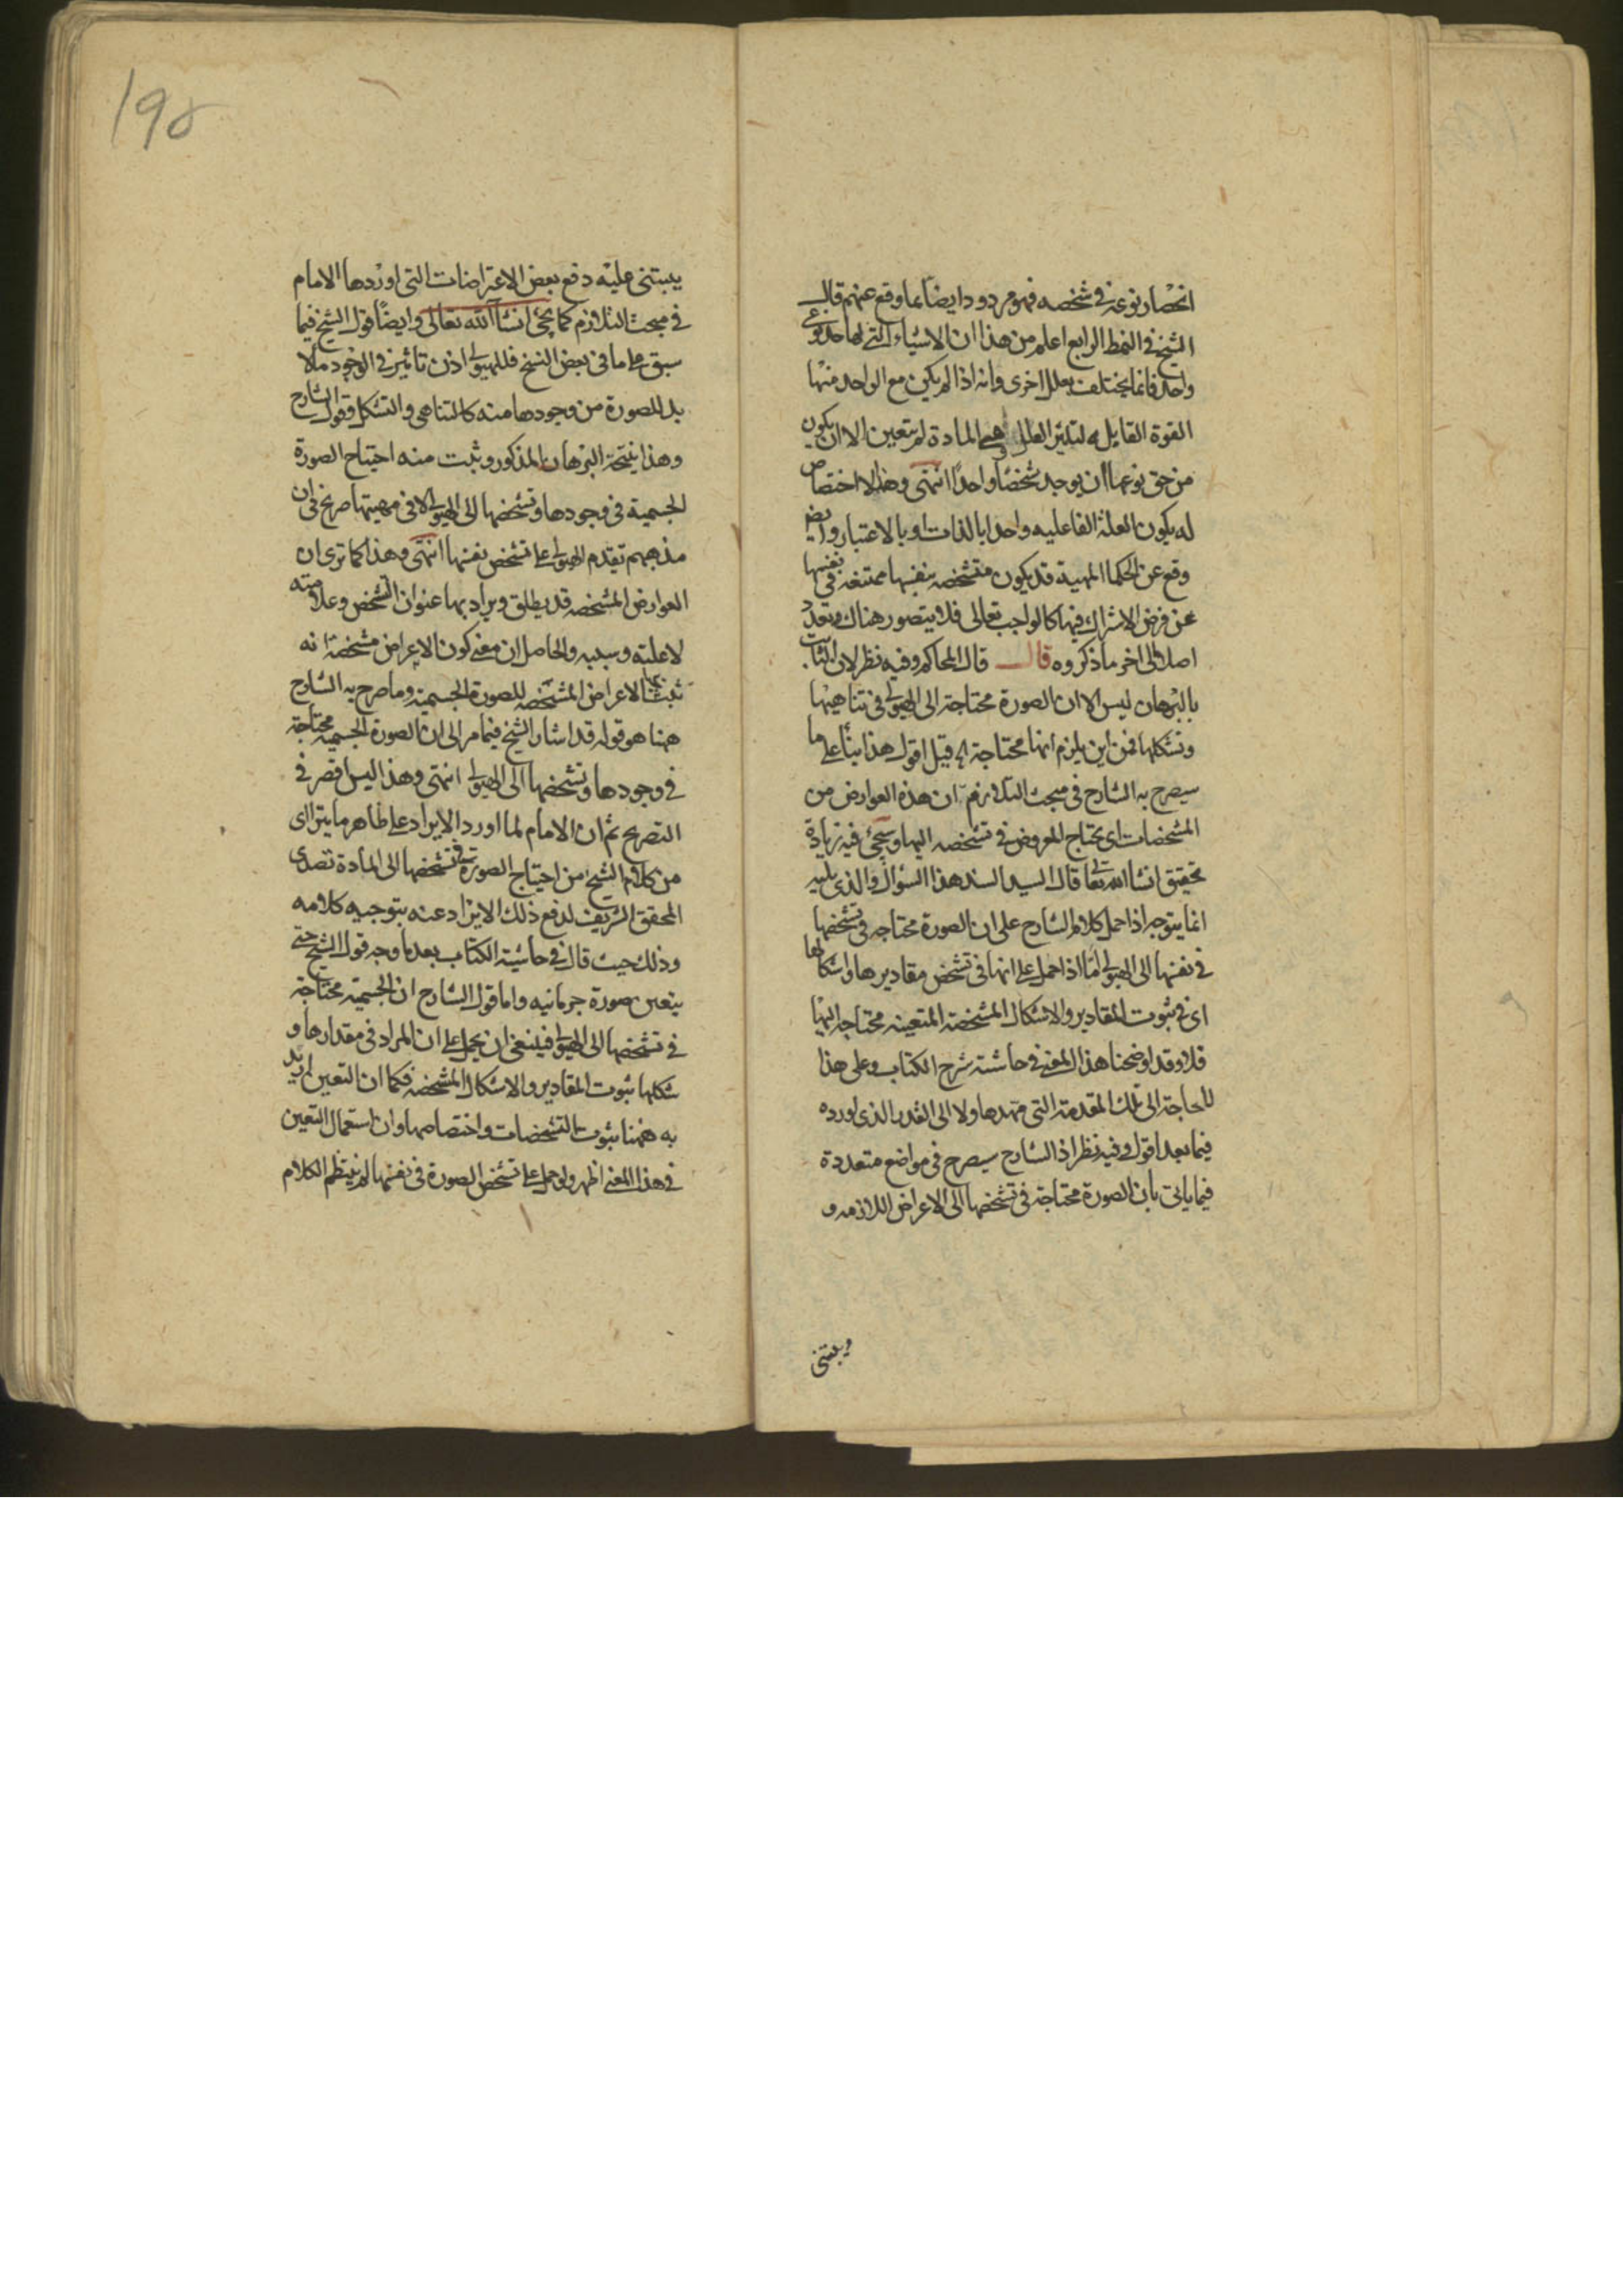 انحصار نوعه في شخصه فهو مردود ايضا بما وقع عنهم قال
الشيخ في النمط الرابع اعلم من هذا ان الاشياء التي لها حد نوعي
واحد فانما يختلف بعلل اخرى وانه اذا لم يكن مع الواحد منها
القوة القابله لتاثير العلل وهي المادة لم يتعين الا ان يكون
من حق نوعها ان يوجد شخصا واحدا انتهى وهذا لا اختصاص
له بكون العلة الفاعليه واحدا بالذات او بالاعتبار وايضا
وقع عن الحكما المهية قد يكون متشخصه بنفسها ممتنعه في نفسها
عن فرض الاشتراك فيها كالواجب تعالى فلا يتصور هناك تعدد
اصلا الى اخر ما ذكروه قال قال المحاكم وفيه نظر لان الثابت
بالبرهان ليس الا ان الصورة محتاجة الى الهيولى في تناهيها
وتشكلها فمن اين يلزم انها محتاجة اه قيل اقول هذا بنأ على ما
سيصرح به الشارح في مبحث التلازم ان هذه العوارض من
المشخصات اي يحتاج المعروض في تشخصه اليها وسيجئ فيه زيادة
تحقيق انشا الله تعا قال السيد السند هذا السؤال والذي يليه
انما يتوجه اذا حمل كلام الشارح على ان الصورة محتاجه في تشخصها
في نفسها الى الهيولى اما اذا حمل على انها في تشخص مقاديرها واشكالها
اي في ثبوت المقادير والاشكال المشخصة المتعينه محتاجه اليها
فلا وقد اوضحنا هذا المعنى في حاشيته شرح الكتاب وعلى هذا
لا حاجة الى تلك المقدمة التي مهدها ولا الى القدر الذي اورده
فيما بعد اقول وفيه نظر اذ الشارح سيصرح في مواضع متعددة
فيما ياتي بان الصورة محتاجة في تشخصها الى الاعراض اللازمه و
ويبتني
١٩٥
يبتني عليه دفع بعض الاعتراضات التي اوردها الامام
في مبحث التلازم كما يجئ انشا الله تعالى وايضا قول الشيخ فيما
سبق على ما في بعض النسخ فللهيولى اذن تاثير في الوجود ما لا
بد للصورة من وجودها منه كالتناهي والتشكل وقول الشارح
وهذا ينتجه البرهان المذكور وثبت منه احتياج الصورة
الجسمية في وجودها وتشخصها الى الهيولى لا في مهيتها صريح في ان
مذهبهم تقدم الهيولى على تشخص نفسها انتهى وهذا كما ترى ان
العوارض المشخصه قد يطلق ويراد بها عنوان التشخص وعلامته
لا علته وسببه والحاصل ان معنى كون الاعراض مشخصة انه
ثبت بها الاعراض المشخصه للصورة الجسميه وما صرح به الشارح
ههنا هو قوله قد اشار الشيخ فيما مر الى ان الصورة الجسميه محتاجة
في وجودها وتشخصها الى الهيولى انتهى وهذا ليس اقصر في
التصريح ثم ان الامام لما اورد الايراد على ظاهر ما يتراى
من كلام الشيخ من احتياج الصورة في تشخصها الى المادة تصدى
المحقق الشريف لدفع ذلك الايراد عنه بتوجيه كلامه
وذلك حيث قال في حاشية الكتاب بعد ما وجه قول الشيخ حتى
يتعين صورة جرمانيه واما قول الشارح ان الجسمية محتاجة
في تشخصها الى الهيولى فينبغي ان يحمل على ان المراد في مقدارها و
شكلها ثبوت المقادير والاشكال المشخصه فكما ان التعين اريد
به ههنا ثبوت التشخصات واختصاصها وان استعمال التعين
في هذا المعنى اظهر ولو حمل على تشخص الصورة في نفسها لم ينتظم الكلام